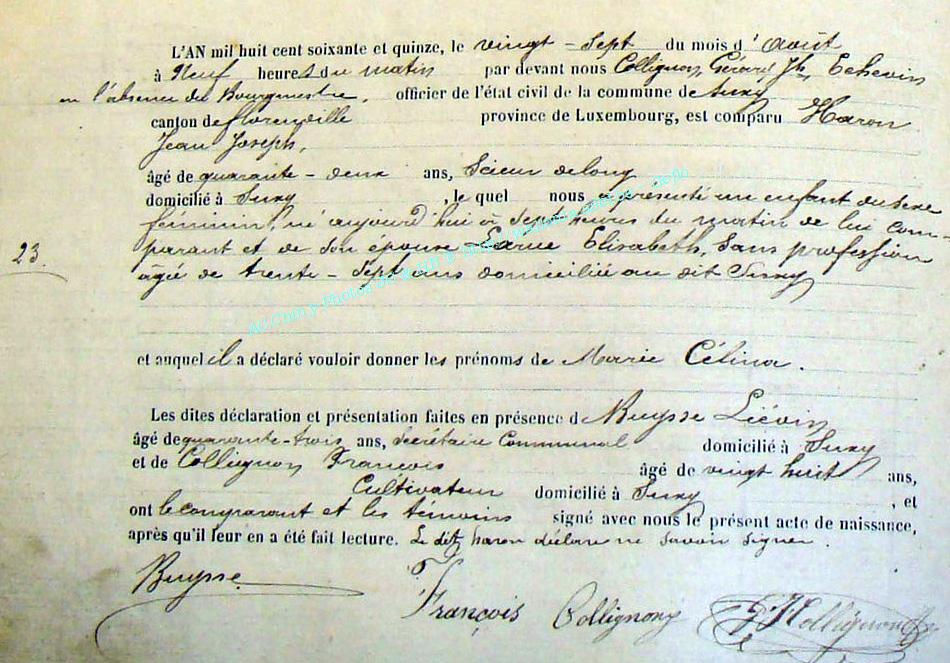 L'AN mil huit cent soixante et quinze, le vingt-sept du mois d'Août
à Neuf heures du matin par devant nous Collignon, Gérard Jh Echevin
en l'absence du Bourgmestre, officier de l'état civil de la commune de Suxy
canton de florenville province de Luxembourg, est comparu Haron
Jean Joseph,
âgé de quarante-deux ans, Scieur de long
domicilié à Suxy, le quel nous a présenté un enfant du sexe
féminin, né aujourd'hui à sept heures du matin de lui com-
23 parant et de son épouse Larue Elisabeth, sans profession
agée de trente-sept ans domiciliée au dit Suxy
et auquel il a déclaré vouloir donner les prénoms de Marie Célina.
Les dites déclaration et présentation faites en présence de Buysse Liévin
âgé de quarante-trois ans, Secrétaire Communal domicilié à Suxy
et de Collignon François âgé de vingt huit ans,
Cultivateur domicilié à Suxy, et
ont le comparant et les témoins signé avec nous le présent acte de naissance,
après qu'il leur en a été fait lecture. Le dit haron déclare ne savoir signer.
Buysse François Collignon GJCollignon